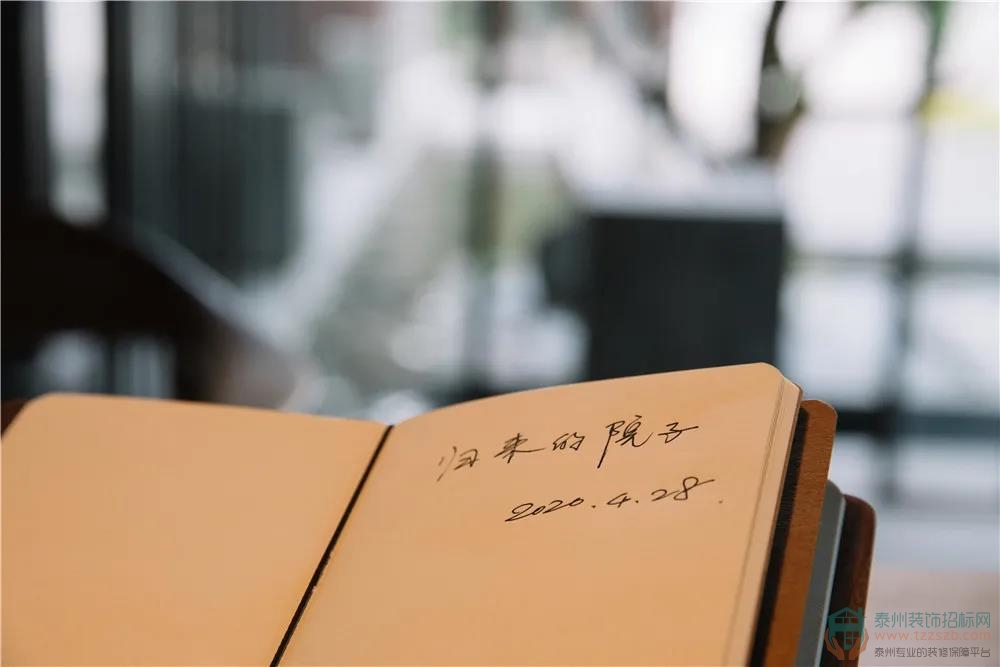 归来的院子
2020.4.28.
泰州装饰招标网
www.tzzszb.com
泰州专业的装修保障平台